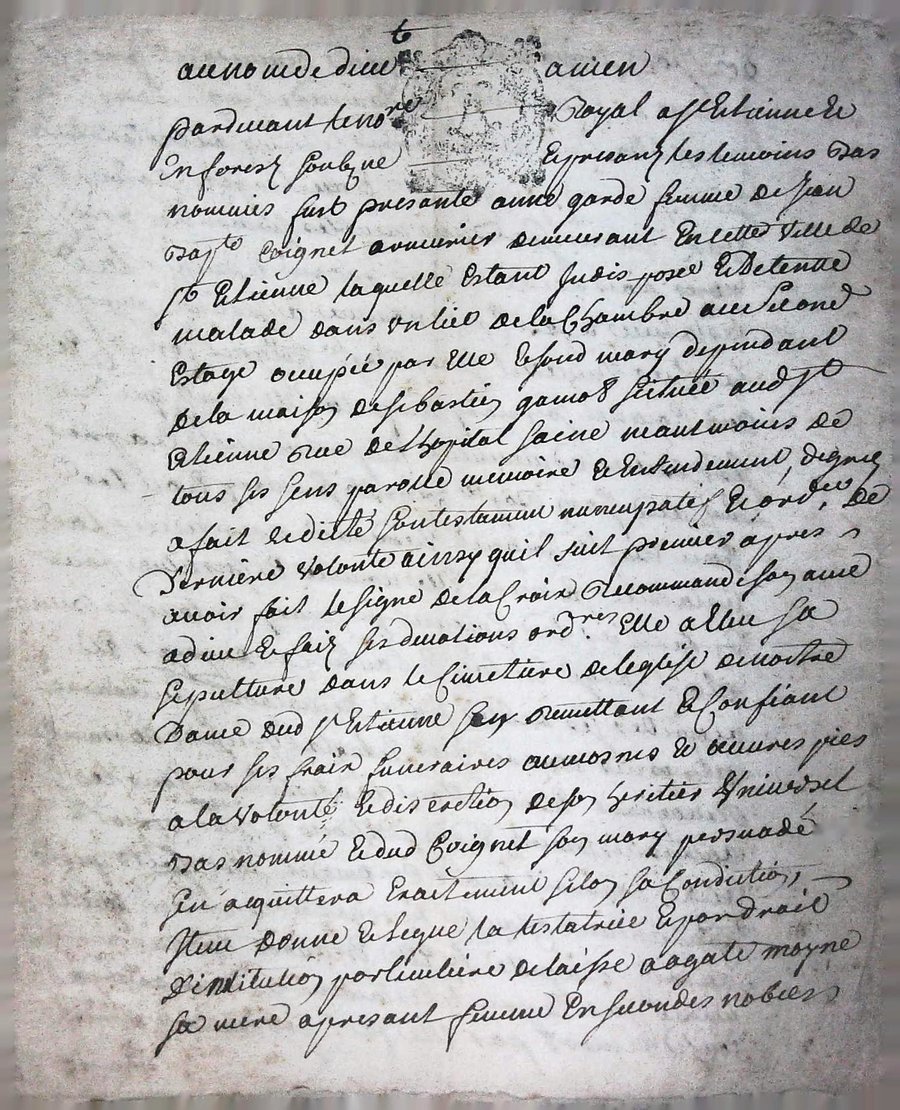 au nom de dieu amen
pardevant le no.re Royal a st Etienne le
En forest soubz.né Et presanz les temoins bas
nommés fust presante anne garde femme de Jean
bap.te Coignet armurier demeurant En cette Ville de
st Etienne laquelle Estant Judisposee Et Detenue
malade dans un liet de la Chambre au second
Estage occupée par Elle Et sond mary dependant
de la maison de sebastien gamot scituée aud st
Etienne rue de l'hopital saine neantmoins de
tous ses sens parolle memoire et Entendement, de gré
a fait et dicté son testament nuncupatif et ord.re de
Derniere Volonté ainsy qu'il suit premier apres
avoir fait le signe de la Croix Recommandé son ame
a dieu Et fait ses devotions ord.res Elle a Eleu sa
sepulture dans le Cimetiere de leglise de nostre
Dame dud st Etienne sen remettant Et Confiant
pour ses fraix funeraires aumosnes Et oeuvres pies
a la Volonté Et discretion de son heritier Universel
bas nommé Et dud Coignet son mary persuadé
sen aquittera Exactement selon sa Condition,
Item donne Et legue la testatrice Et par droit
D'institution particuliere delaisse a agate moyne
sa mere a presant femme En secondes nobces